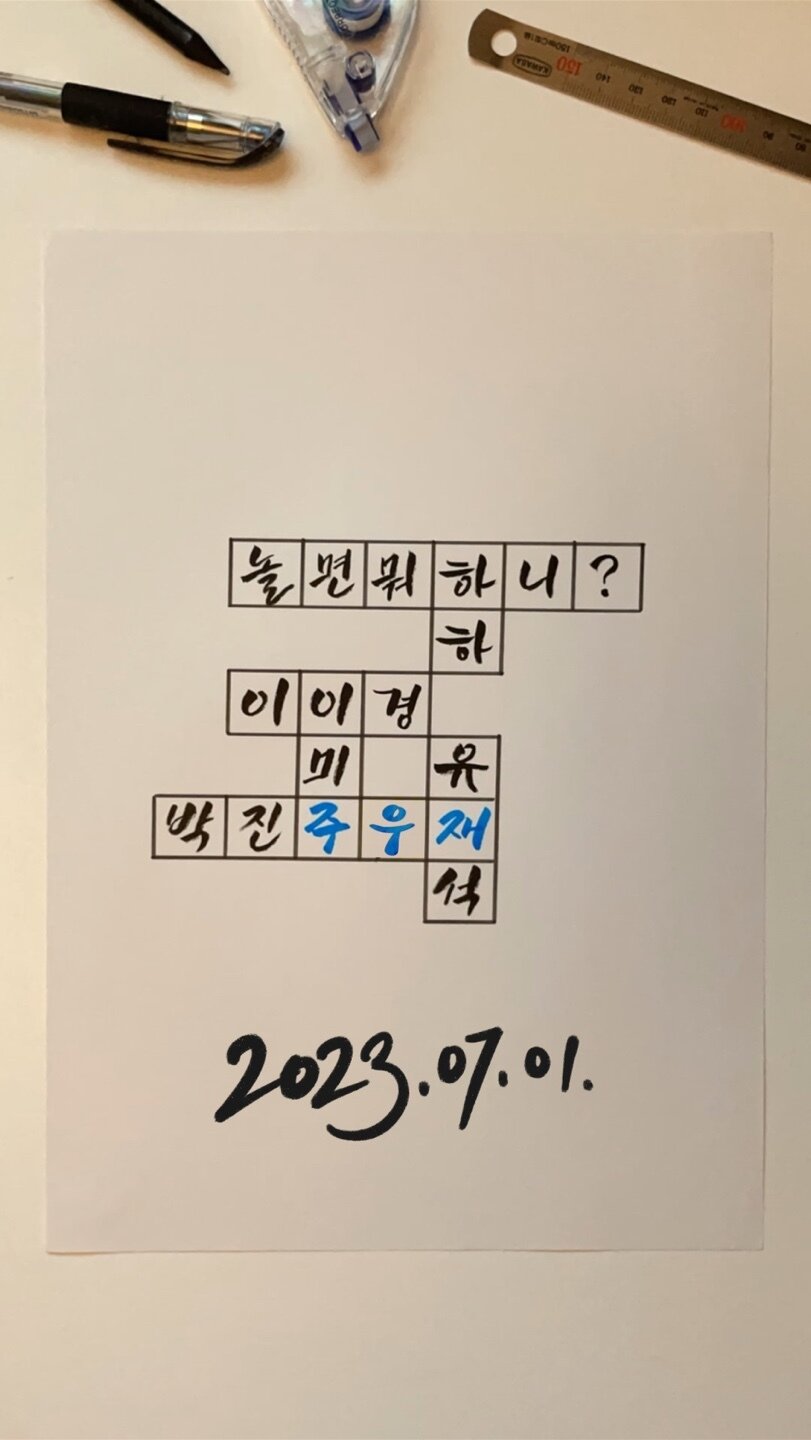 놀면뭐하니?
하
이이경
미 유
박진주우재
석
2023.07.01.
KAWASA
150 140 130 120 110 100 90 80